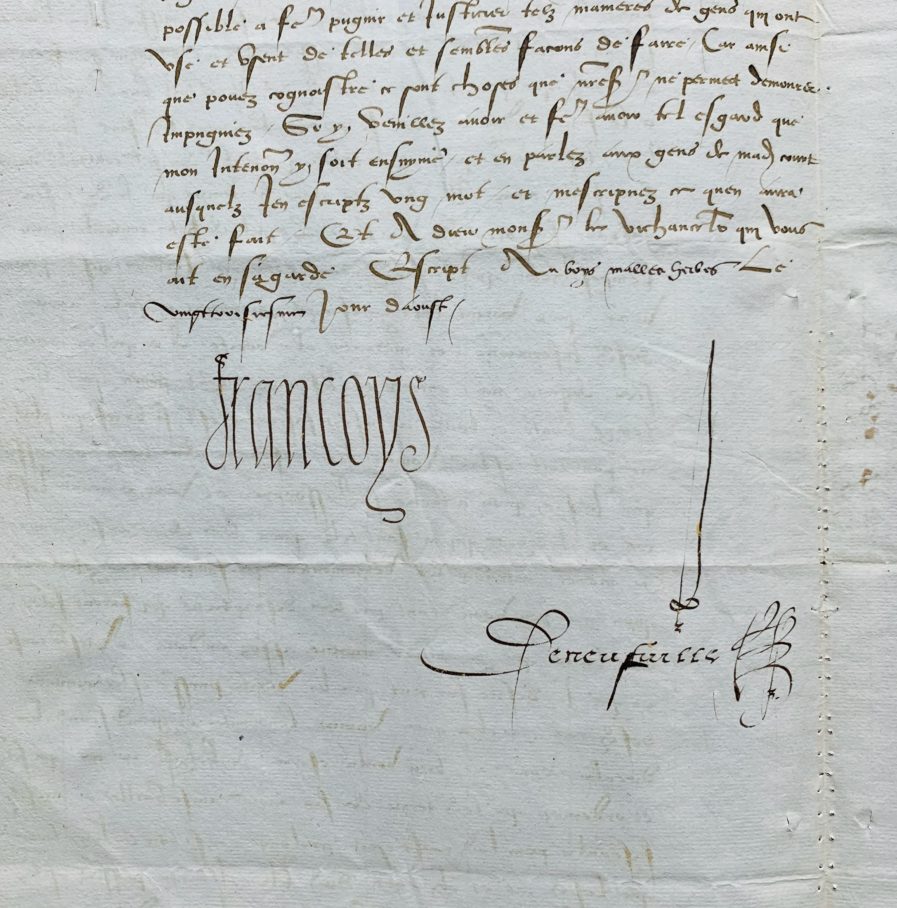 possible a fe^r pugnir et Justicier telz manieres de gens qui ont
use et usent de telles et sembles facons de faire / Car ainsi
que povez cognoistre ce sont choses que ne permect demourer
Impugniez / Vueillez avoir et fe^r avoir tel esgard que
mon Intencon y soit ensuyvie / et en parlez aux gens de mad court
ausquelz J en escriptz ung mot / et mescripvez ce quen aura
este fait / Et A dieu mons^r le vichancel^r qui vous
ait en sa garde Escript Au boys mallesherbes Le
vingttroisiesme Jour daoust /
Francoys
Deneufville